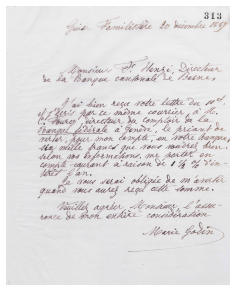 313
Guise Familistère 20 décembre 1897
Monsieur H. Henzé, Directeur
de la Banque cantonale de Berne,
J'ai bien reçu votre lettre du
et j'écris par ce même courrier, à M.
directeur du comptoir de la
Banque fédérale à Genève, le priant de
verser, pour mon compte, en votre banque,
mille francs que vous voudrez bien
selon vos informations, me porter en
compte courant à raison de
l'an.
Je vous serai obligée de m'aviser
quand vous aurez reçu cette somme.
Veuillez agréer Monsieur, l'assu-
rance de mon entière considération
Marie Godin